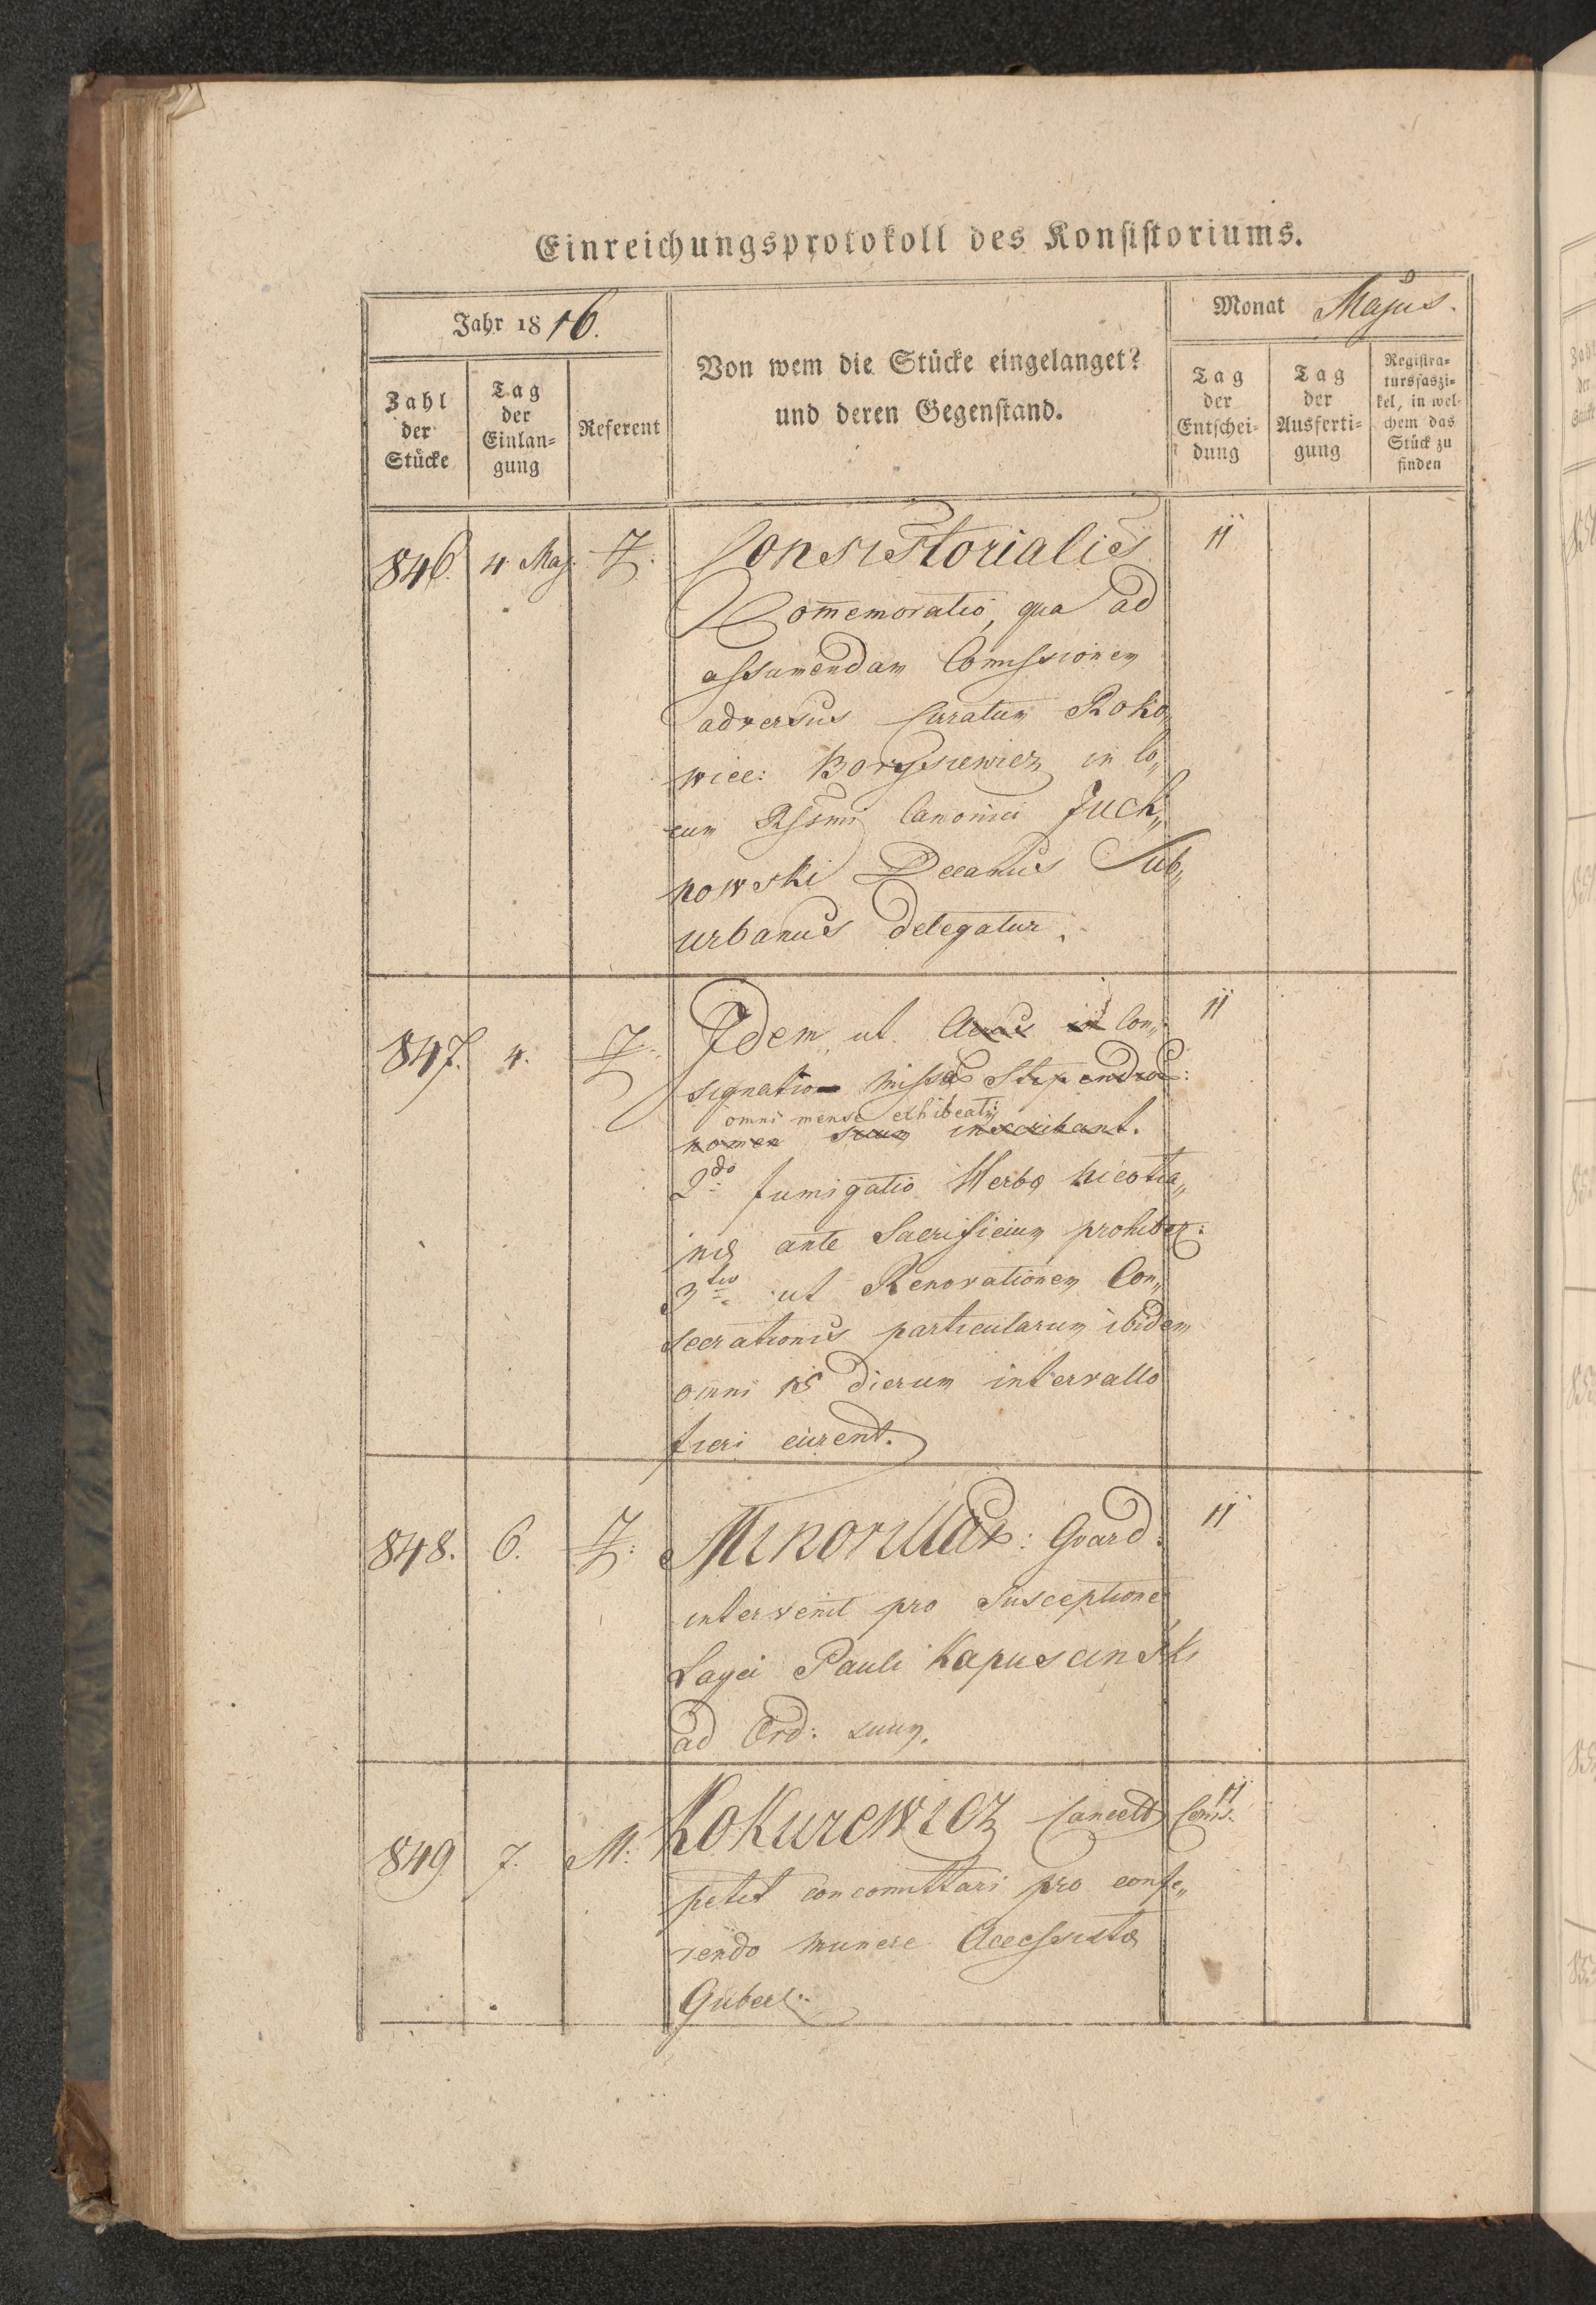 Einreichungsprotokoll des Konsistoriums.
Jahr 1816.
Monat Majus.
Zahl der Stücke
Tag der Einlangung
Referent
Von wem die Stücke eingelanget?
und deren Gegenstand.
Tag der Entscheidung
Tag der Ausfertigung
Registratursfaszikel, in welchem das Stück zu finden
846. 4 Maj. Consistorialis 11
Commemoratio, qua ad
assumendam Comissionem
adversus Curatum Roko„
wice: Borysiewicz in lo„
cum Rssmi Canonici Juch„
nowski Decanus Sub„
urbanus delegatur.
847. 4. Idem ut Con„ 11
signatio missar Stipendior:
omni mense exhibeatur
nomen suum inscribant.
2do fumigatio Herbæ nicotia„
næ ante Sacrificium prohibet:
3tio ut Renovationem Con„
secrationis particularum ibidem
omni 15 dierum intervallo
fieri curent.
848. 6. Minoritar: Gvard: 11
intervenit pro Susceptione
Layci Pauli Kapuscinski
ad Ord: suum.
849 7. M: Kokurewicz Cancell 11
petit concomittari pro confe„
rendo munere Accessistæ
Guber: